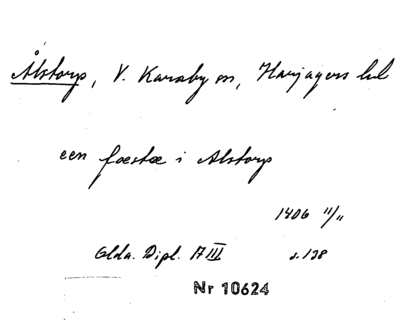 Ålstorp, V. Karaby sn, Harjagers hd
een fæstæ i Alstorp
1406 11/11
Glda. Dipl. A III s. 138
Nr 10624